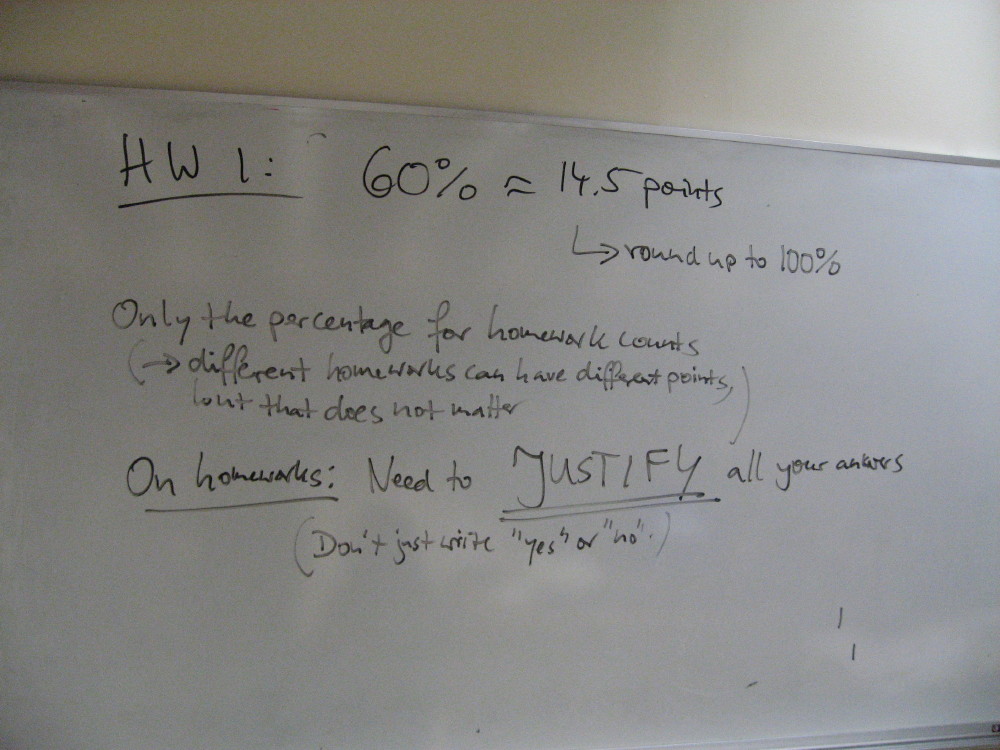 HW 1: 60% ≈ 14.5 points
↳ round up to 100%
Only the percentage for homework counts
(→ different homeworks can have different points,
but that does not matter)
On homeworks: Need to JUSTIFY all your answers
(Don't just write "yes" or "no".)